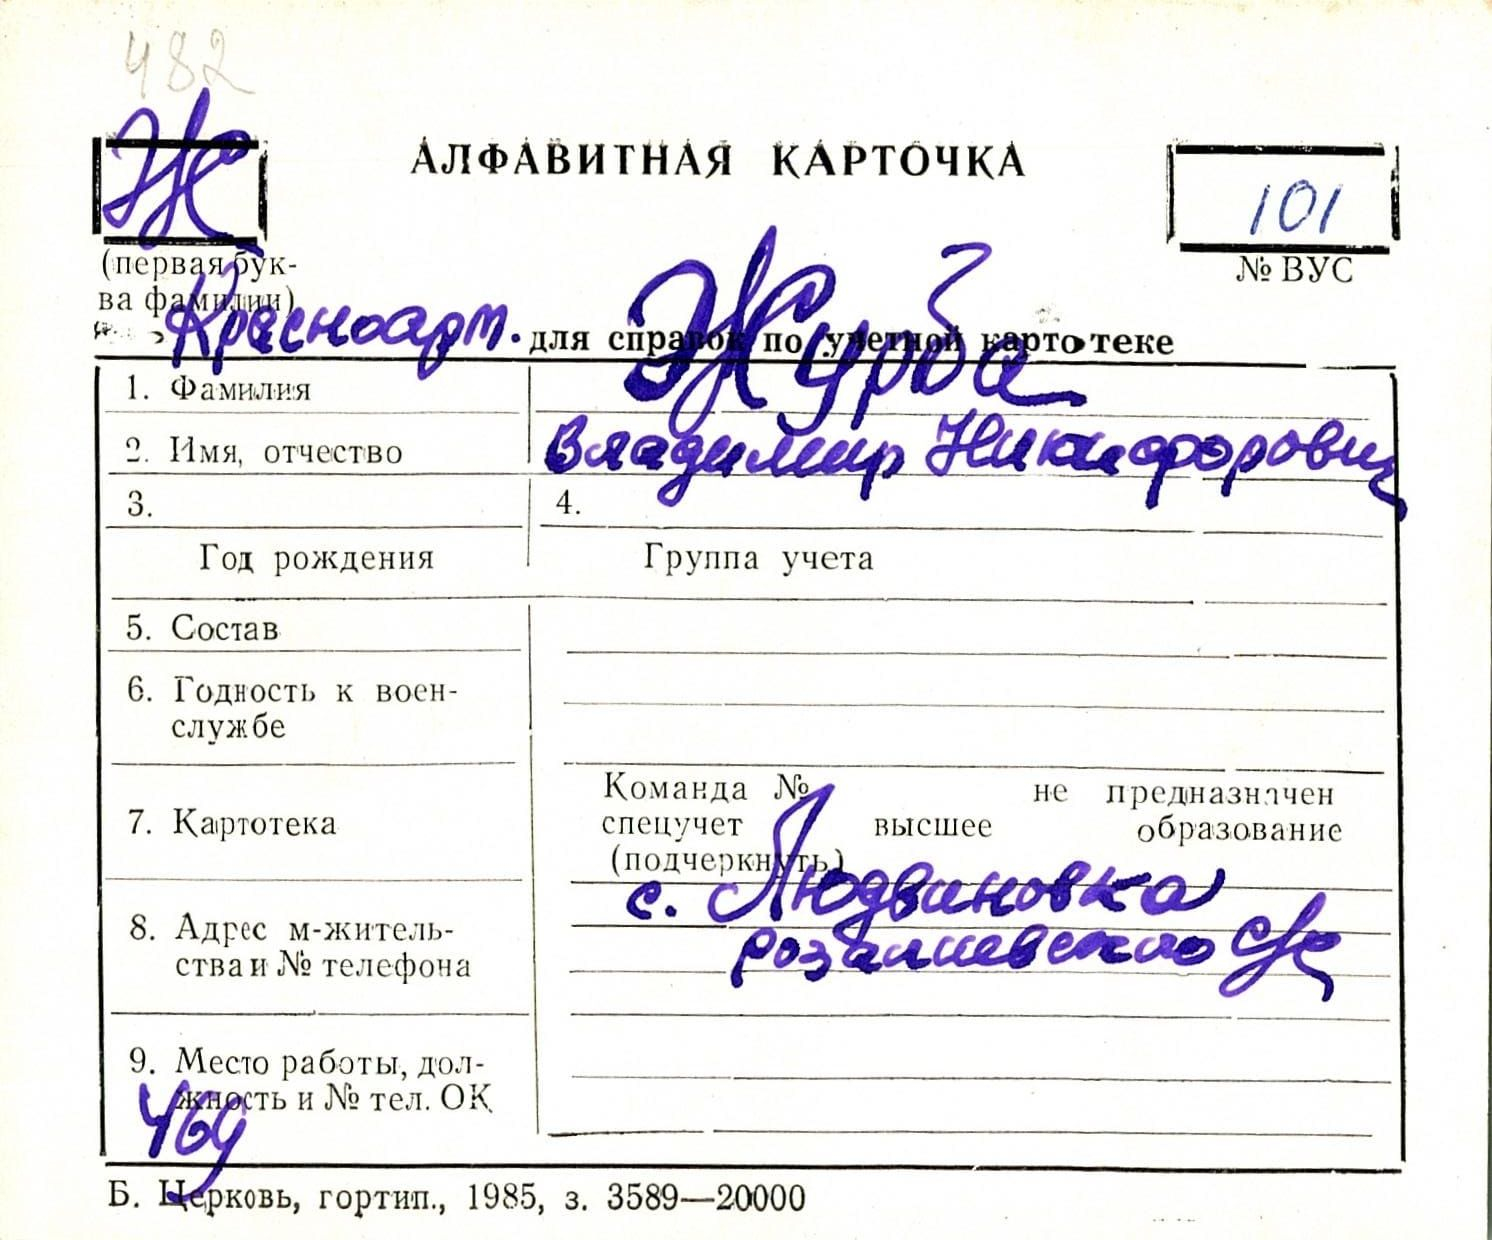 482
Ж
АЛФАВИТНАЯ КАРТОЧКА
101
(первая бук-
ва фамилии)
№ ВУС
Красноарм. для справок по учетной картотеке
1. Фамилия Журба
2. Имя, отчество Владимир Никифорович
3. 4.
Год рождения Группа учета
5. Состав
6. Годность к воен-
службе
7. Картотека
Команда № не предназначен
спецучет высшее образование
(подчеркнуть)
8. Адрес м-житель-
ства и № телефона
с. Людвиновка
розалиевского с/с
9. Место работы, дол-
жность и № тел. ОК
469
Б. Церковь, гортип., 1985, з. 3589—20000